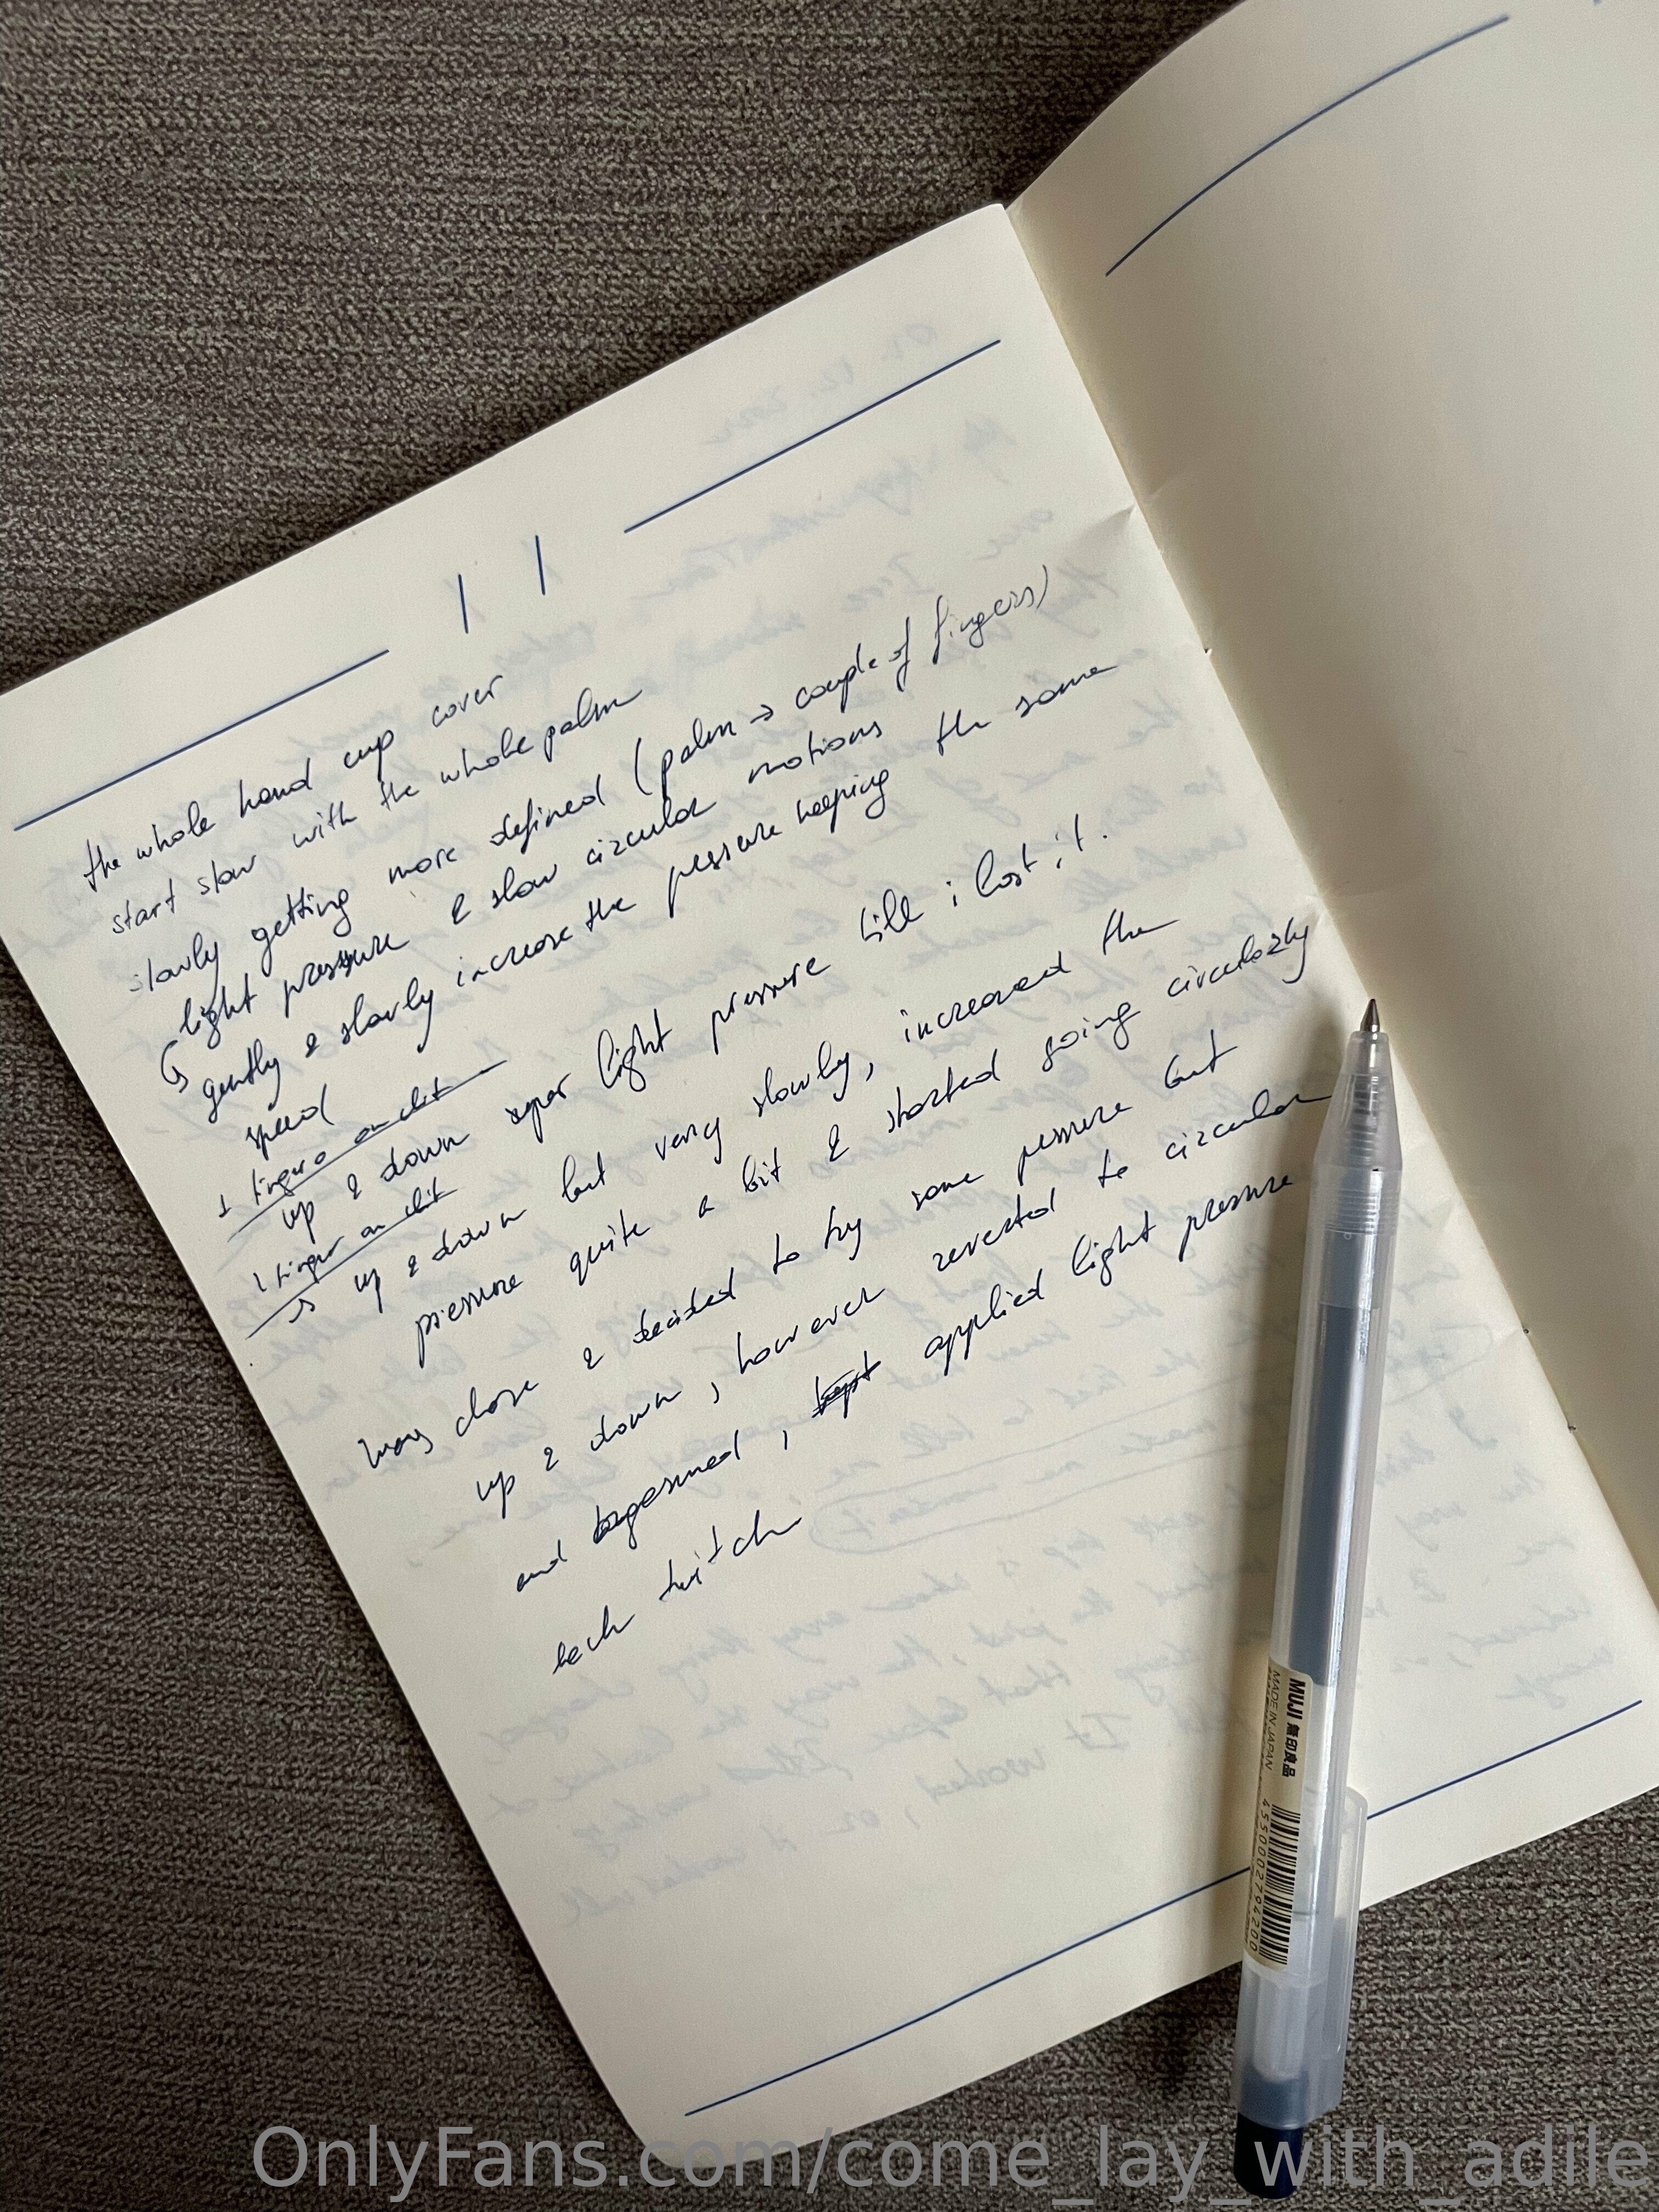 the whole hand cup cover
start slow with the whole palm
slowly getting more defined (palm → couple of fingers)
light pressure & slow circular motions
↳ gently & slowly increase the pressure keeping the same
speed
1 finger on clit
up & down super light pressure till i lost it.
1 finger on clit
↳ up & down but very slowly, increased the
pressure quite a bit & started going circularly
was close & decided to try some pressure but
up & down, however reverted to circular
and , kept applied light pressure
each twitch
MUJI 無印良品
MADE IN JAPAN
4550002794200
OnlyFans.com/come_lay_with_adile